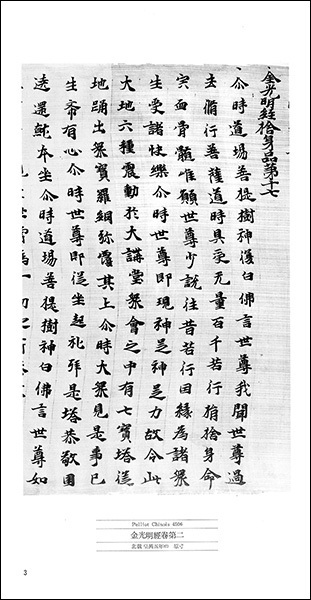 金光明經捨身品第十七
尒時道場菩提樹神復白佛言世尊我聞世尊過
去脩行菩薩道時具受无量百千苦行捐捨身命
宍血骨髓惟願世尊少說往昔苦行因緣為諸衆
生受諸快樂尒時世尊即現神足神足力故令此
大地六種震動於大講堂衆會之中有七寳塔從
地踊出衆寳羅網弥覆其上尒時大衆見是事已
生希有心尒時世尊即從坐起礼拜是塔恭敬圍
遶還就本坐尒時道場菩提樹神白佛言世尊如
Pelliot Chinois 4506
金光明經卷第二
3